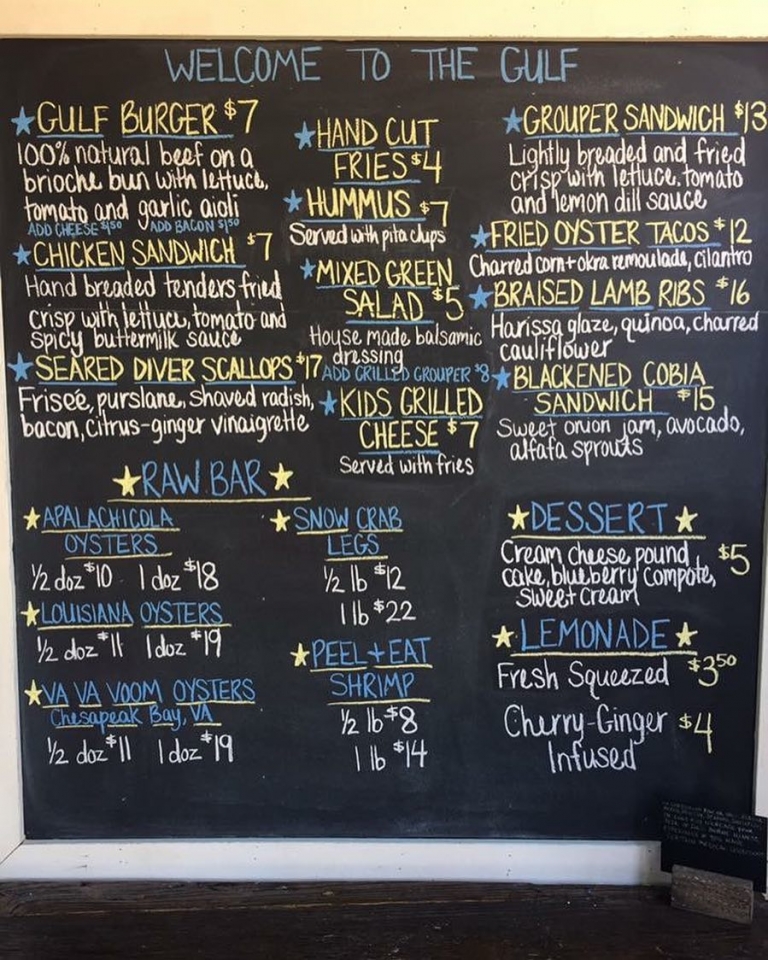 WELCOME TO THE GULF
GULF BURGER $7
100% natural beef on a
brioche bun with lettuce,
tomato and garlic aioli
ADD CHEESE $1.50 ADD BACON $1.50
CHICKEN SANDWICH $7
Hand breaded tenders fried
crisp with lettuce, tomato and
spicy buttermilk sauce
SEARED DIVER SCALLOPS $17
Friseé, purslane, shaved radish,
bacon, citrus-ginger vinaigrette
HAND CUT
FRIES $4
HUMMUS $7
Served with pita chips
MIXED GREEN
SALAD $5
House made balsamic
dressing
ADD GRILLED GROUPER $8
KIDS GRILLED
CHEESE $7
Served with fries
GROUPER SANDWICH $13
Lightly breaded and fried
crisp with lettuce, tomato
and lemon dill sauce
FRIED OYSTER TACOS $12
Charred corn + okra remoulade, cilantro
BRAISED LAMB RIBS $16
Harissa glaze, quinoa, charred
cauliflower
BLACKENED COBIA
SANDWICH $15
Sweet onion jam, avocado,
alfafa sprouts
RAW BAR
APALACHICOLA
OYSTERS
1/2 doz $10 1 doz $18
LOUISIANA OYSTERS
1/2 doz $11 1 doz $19
VA VA VOOM OYSTERS
Chesapeak Bay, VA
1/2 doz $11 1 doz $19
SNOW CRAB
LEGS
1/2 lb $12
1 lb $22
PEEL + EAT
SHRIMP
1/2 lb $8
1 lb $14
DESSERT
Cream cheese pound $5
cake, blueberry compote,
sweet cream
LEMONADE
Fresh Squeezed $3.50
Cherry-Ginger $4
Infused